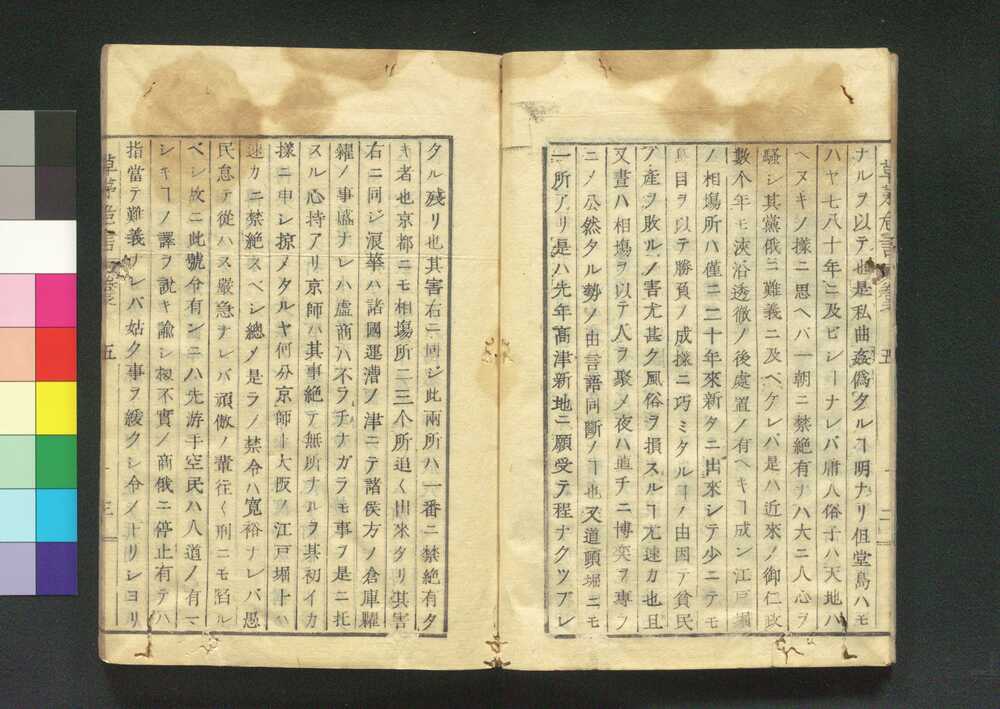 ナルヲ以テ也是私曲姦僞タルヿ明ナリ但堂島ハモ
ハヤ七八十年ニ及ビシヿナレバ庸人俗子ハ天地ハ
ヘヌキノ樣ニ思ヘバ一朝ニ禁絶有ナハ大ニ人心ヲ
騷シ其黨俄ニ難義ニ及ベケレバ是ハ近來ノ御仁政
數个年モ浹洽透徹ノ後處置ノ有ヘキヿ成ン江戸堀
ノ相場所ハ僅ニ二十年來新タニ出來シテ少ニテモ
目ヲ以テ勝負ノ成樣ニ巧ミタルヿノ由因テ貧民
ノ産ヲ敗ルノ害尤甚ク風俗ヲ損スルヿ尤速カ也且
又晝ハ相塲ヲ以テ人ヲ聚メ夜ハ直チニ博奕ヲ專フ
ニノ公然タル勢ノ由言語同斷ノヿ也又道頭堀ニモ
一所アリ是ハ先年高津新地ニ願受テ程ナクツブレ
草茅危言 卷五
二
タル殘リ也其害右ニ同ジ此兩所ハ一番ニ禁絶有タ
キ者也京都ニモ相塲所二三个所追く出來タリ其害
右ニ同ジ浪華ハ諸國運漕ノ津ニテ諸侯方ノ倉庫糶
糴ノ事盛ナレハ虚商ハ不ラチナガラモ事ヲ是ニ托
スル心持アリ京師ハ其事絶テ無所ナルヲ其初イカ
樣ニ申シ掠メタルヤ何分京師ト大阪ノ江戸堀トハ
速カニ禁絶スベシ總メ是ラノ禁令ハ寛裕ナレバ愚
民怠テ從ハス嚴急ナレバ頑傲ノ輩往く刑ニモ陷ル
ベシ故ニ此號令有ンニハ先游手空民ハ人道ノ有マ
シキヿノ譯ヲ説キ諭シ扨不實ノ商俄ニ停止有テハ
指當テ難義ノレバ姑ク事ヲ緩クシ令ノ下リシヨリ
草茅危言 卷五
三